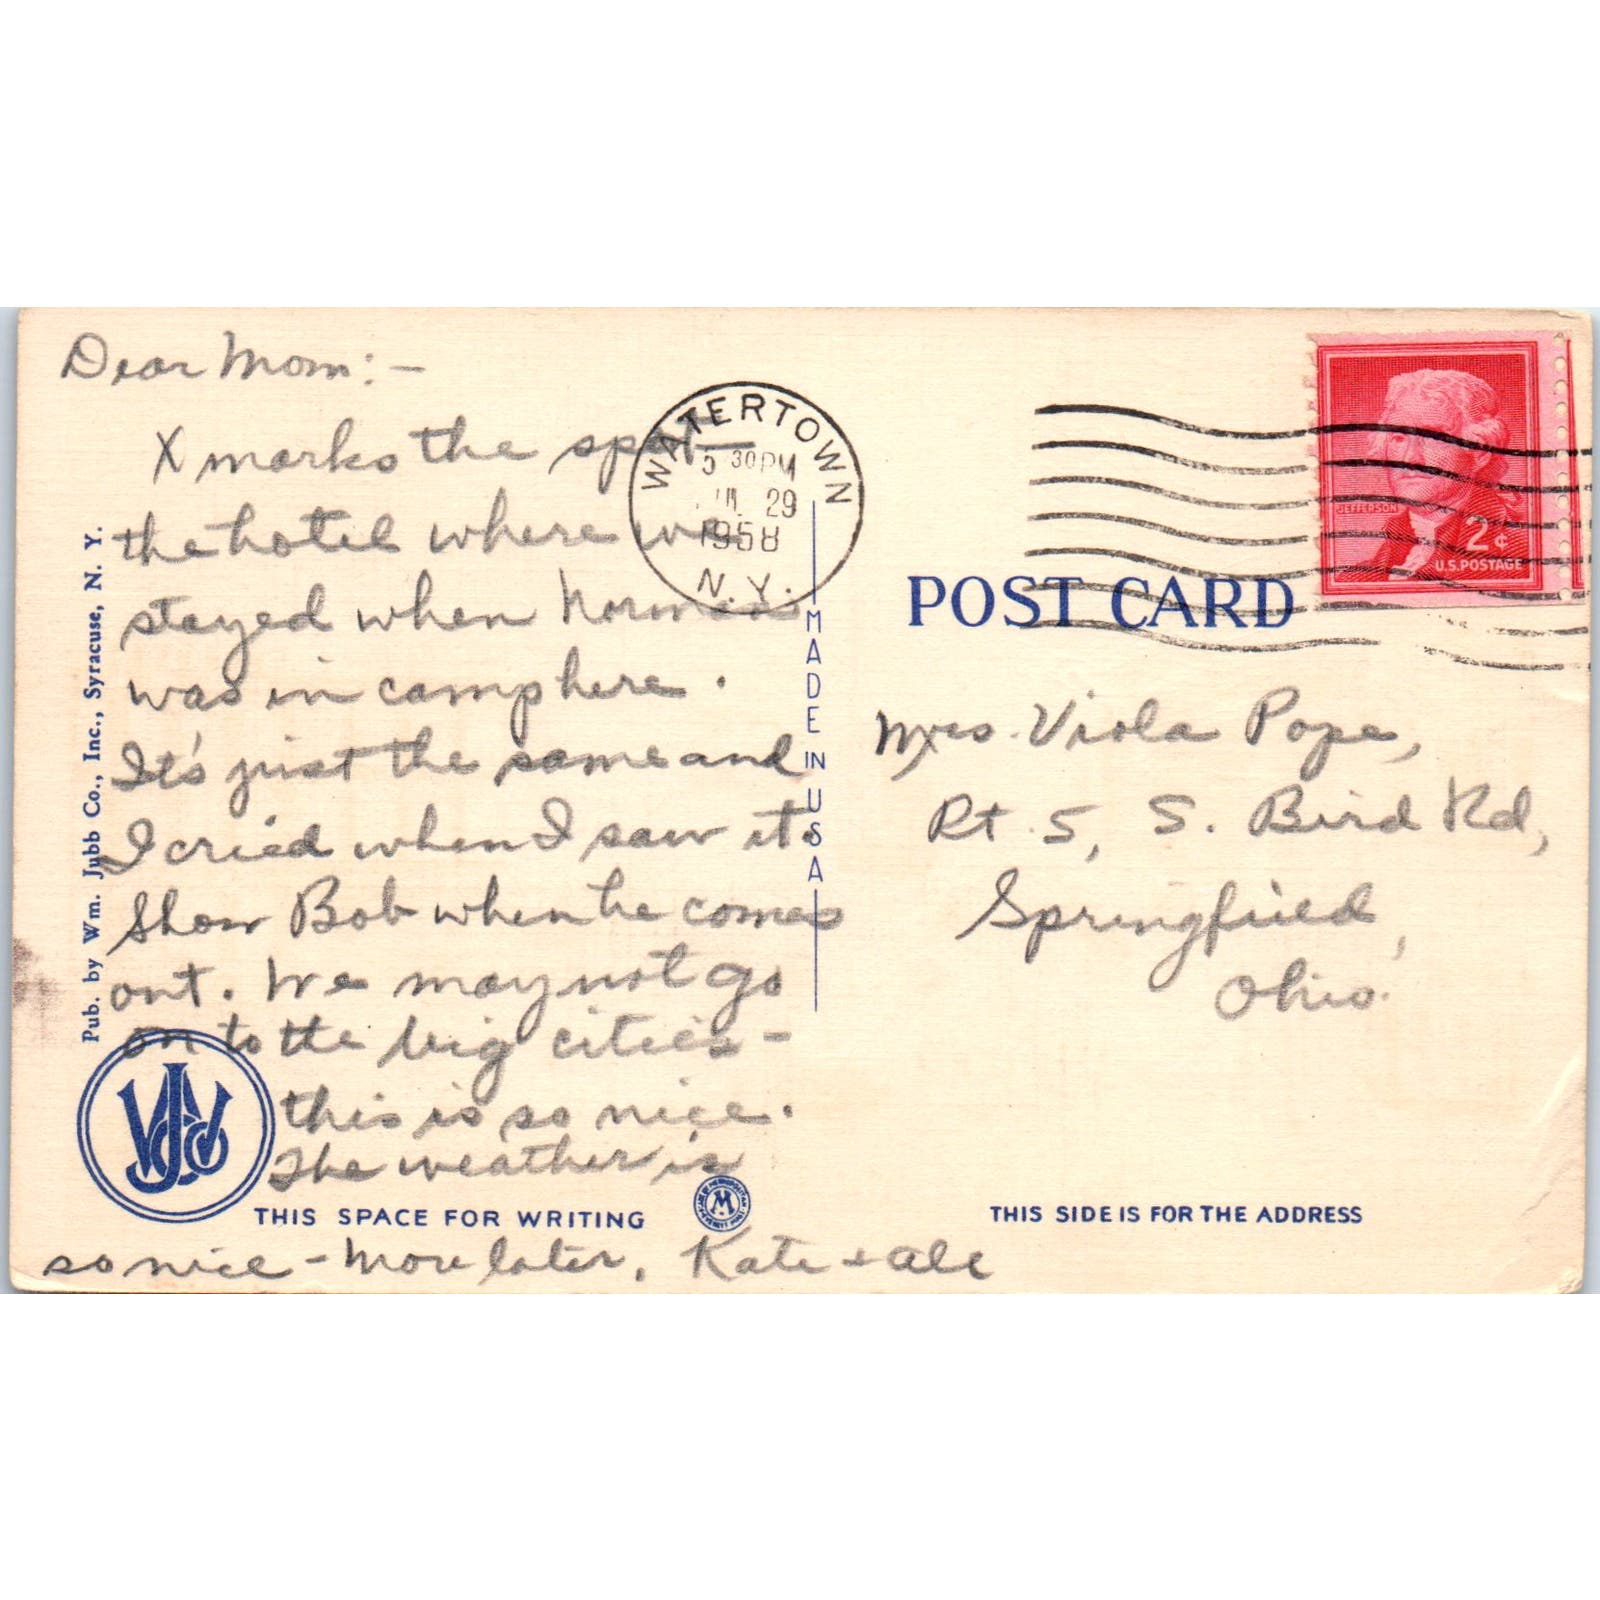 Dear Mom:-
X marks the spot-
the hotel where we
stayed when Norman
was in camp here.
It's just the same and
I cried when I saw it.
Show Bob when he comes
out. We may not go
on to the big cities-
this is so nice.
The weather is
so nice - More later, Kate + All
Pub. by Wm. Jubb Co., Inc., Syracuse, N. Y.
WJCo
THIS SPACE FOR WRITING
M
MADE IN USA
WATERTOWN
5 30PM
JUL 29
1958
N.Y.
JEFFERSON
2¢
U.S.POSTAGE
POST CARD
Mrs. Viola Pope,
Rt. 5, S. Bird Rd,
Springfield,
Ohio.
THIS SIDE IS FOR THE ADDRESS